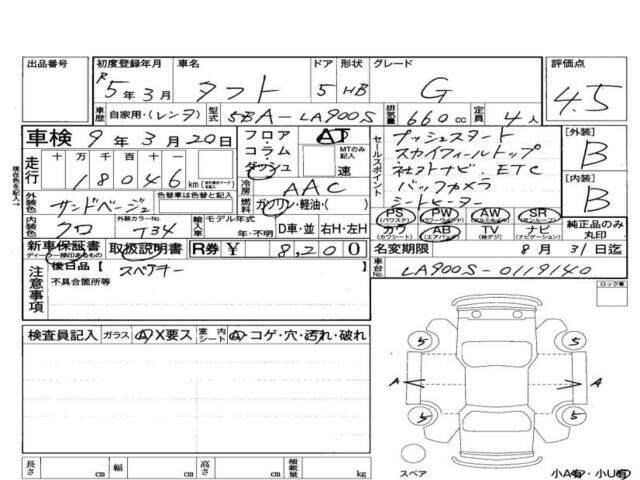 出品番号 初度登録年月 車名 ドア 形状 グレード 評価点
R5年3月 タフト 5 HB G 4.5
車歴 自家用・(レンタ) 型式 5BA-LA900S 排気量 660cc 定員 4人
車検 9年3月20日 フロア・コラム・ダッシュ AT MTのみ記入 速
セールスポイント
プッシュスタート
スカイフィールトップ
ナビ ETC
バックカメラ
シートヒーター
[外装] B
[内装] B
現在色を記入→
走行 十 万 千 百 十 一
18046 km
冷房 AAC
燃料 ガソリン・軽油・( )
外装色 サンドベージュ 色替車は色替と記入
内装色 クロ 外装カラーNo. T34
輸入車 モデル年式 年・不明 D車・並 右H・左H
PS (パワステ) PW (パワーウインド) AW (アルミホイル) SR (サンルーフ)
カワ (カワシート) AB (エアバッグ) TV (地デジ) ナビ (ナビゲーション)
純正品のみ丸印
新車保証書 ディーラー捺印あるもの 取扱説明書 R券 ¥ 8,200
名変期限 8月31日迄
注意事項 後日品【 スペアキー 】
不具合箇所等
車台No. LA900S-0119140
ロック車
検査員記入 ガラス A X要ス 室内シート A・コゲ・穴・汚れ・破れ
5 5
A A
5 5
スペア 小A有・小U有
長さ cm 幅 cm 高さ cm 積載量 kg